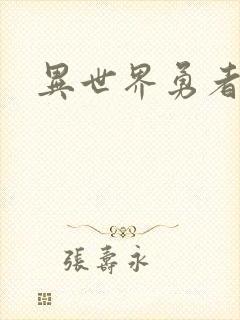 異世界勇者
張壽永